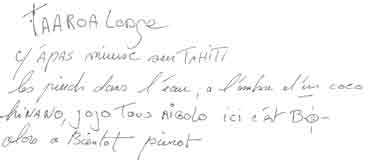 TAAROA Lodge
c/ APAS mieux sur TAHITI
les pieds dans l'eau, a l'ombre d'un coco
hiNANO, jojo Tous RiGOLO ici c'est BO
alors a Bientot pierrot